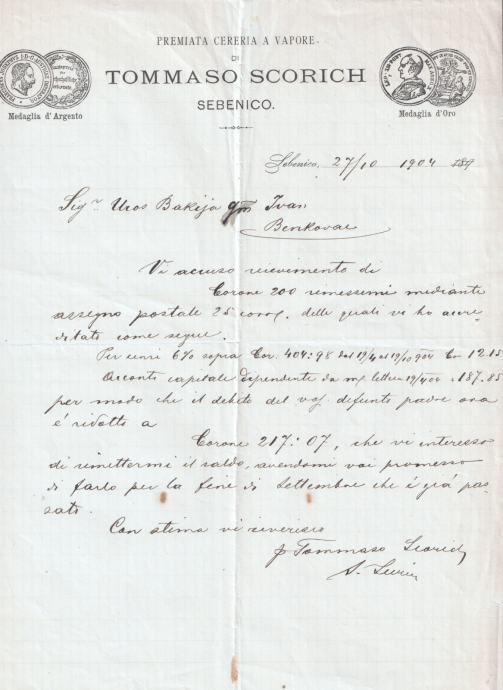 PREMIATA CERERIA A VAPORE
DI
TOMMASO SCORICH
SEBENICO.
Medaglia d'Argento
Medaglia d'Oro
Sebenico, 27/10 1904 189
Sigr Uros Bakija qm Ivan
Benkovac
Vi accuso ricevimento di
Corone 200 rimessemi mediante
assegno postale 25 corr, delle quali vi ho accre-
ditato come segue.
Per cenni 6% sopra Cor. 404:98 dal 19/4 al 19/10 904 Cor 12.15
Acconto capitale dipendente da mp lettera 19/4 904 " 187.85
per modo che il debito del vos. defunto padre ora
é ridotto a
Corone 217:07, che vi interesso
di rimettermi il saldo, avendomi voi promesso
di farlo per la fine di Settembre che é giá pas-
sato.
Con stima vi riverisco
p Tommaso Scorich